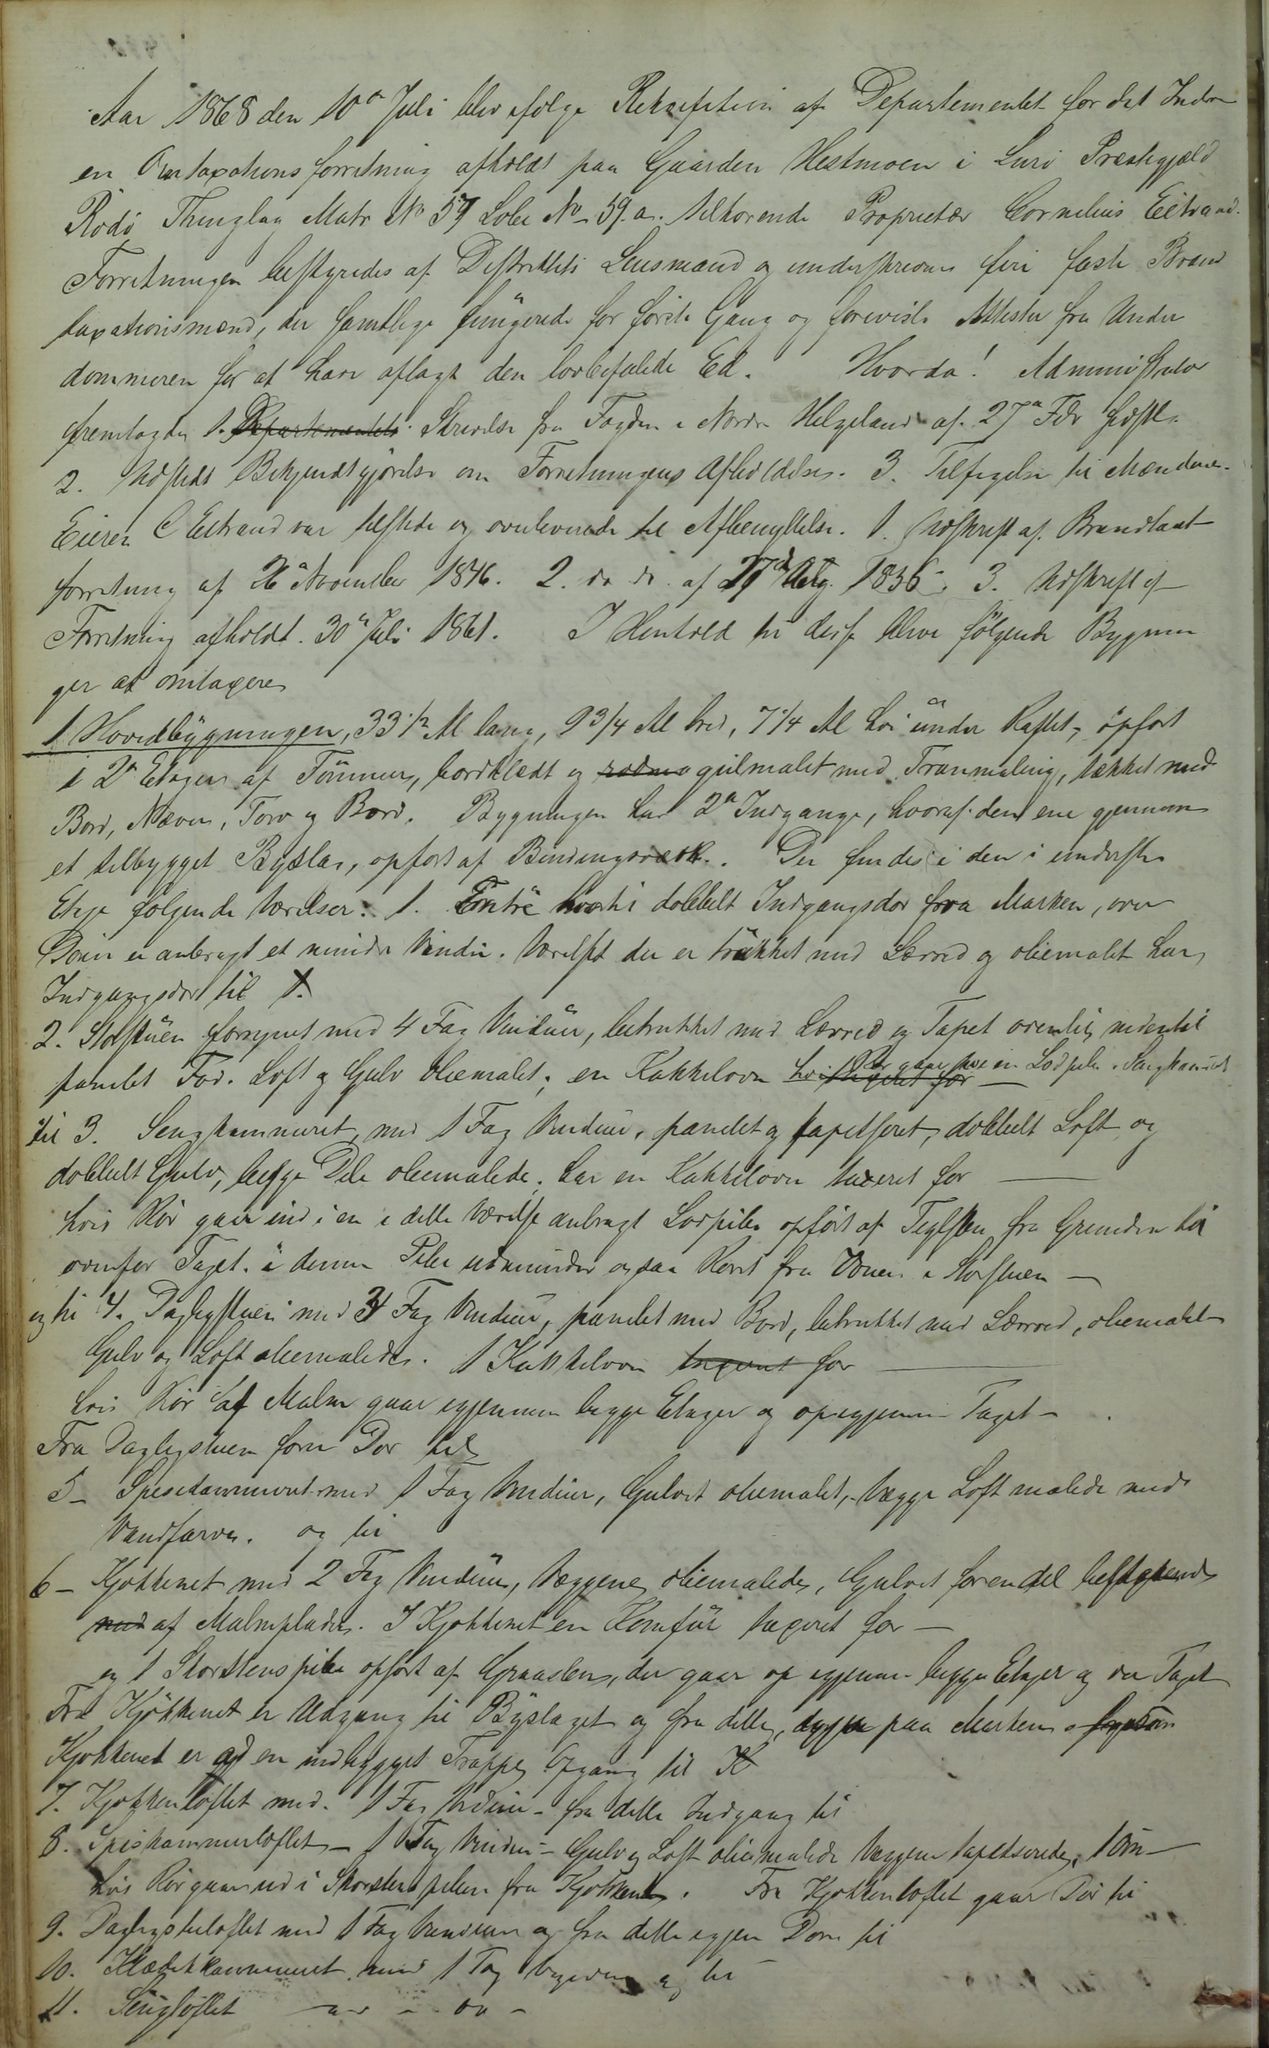 Aar 1868 den 10de Juli blev ifølge Rekvisition af Departementet for det Indre
en Omtaxationsforretning afholdt paa Gaarden Hestmoen i Lurø Præstegjæld
Rödö Thinglag Matr No 57 Løbe No 59.a. tilhørende Proprietær Cornelius Eltrand.
Forretningen bestyredes af Distriktets Lensmand og underskrevne fire faste Brand
taxationsmænd, der samtlige fungerede for første Gang og foreviste Attester fra Under
dommeren for at have aflagt den lovbefalede Ed. Hvorda! Administrator
fremlagde 1. Departementets Skrivelse fra Fogden i Nordre Helgeland af 27de Febr sidstl.
2. Udstedt Bekjendtgjørelse om Forretningens Afholdelse. 3. Tilsigelse til Mændene.
Eieren C Eltrand var tilstede og overleverede til Afbenyttelse. 1. Udskrift af Brandtaxt
forretning af 26de November 1846. 2. do do. af 27de Aug. 1856. 3. Udskrift af
Forretning afholdt 30de Juli 1861. I Henhold til disse blive følgende Bygnin
ger at omtaxeres
1 Hovedbygningen, 33 1/2 Al lang, 9 3/4 Al bred, 7 1/4 Al høi under Raftet, opført
i 2de Etager af Tømmer, bordklædt og rødm gulmalet med Tranmaling, tækket med
Bord, Næver, Torv og Bord. Bygningen har 2de Indgange, hvoraf den ene gjennem
et tilbygget Byslag, opført af Bindingsværk. Der findes i den i underste
Etage følgende Værelser: 1. Entré hvortil dobbelt Indgangsdør fra Marken, over
Døren er anbragt et mindre Vindu. Værelset der er trukket med Lærred og oliemalet har
Indgangsdør til 1.
2. Storstuen forsynet med 4 Fag Vinduer, betrukket med Lærred og Tapet ovenlig nedentil
panelet Fod. Loft og Gulv oliemalet; en Kakkelovn hvis Rør gaar ind i en Lodpibe i Sengkammeret
til 3. Sengkammeret, med 1 Fag Vinduer, panelet og tapetseret, dobbelt Loft og
dobbelt Gulv, begge Dele oliemalede; har en Kakkelovn taxeret for —
hvis Rör gaar ind i en i dette Værelse anbragt Lodpibe opført af Teglsten fra Grunden til
ovenfor Taget. i denne Pibe udmunder ogsaa Røret fra Ovnen i Storstuen —
og til 4. Dagligstuen med 3 Fag Vinduer, panelet med Bord, betrukket med Lærred, oliemalet
Gulv og Loft oliemalede. 1 Kakkelovn taxeret for —
hvis Rör af Malm gaar igjennem begge Etager og op igjennem Taget —.
Fra Dagligstuen fører Dør til
5 – Spisekammeret med 1 Fag Vinduer, Gulvet oliemalet, Vægge Loft malede med
Vandfarve. og til
6 – Kjøkkenet med 2 Fag Vinduer, Væggene oliemalede, Gulvet for en del bestaaende
med af Malmplader. I Kjøkkenet en Komfür taxeret for —
og 1 Skorstenspibe opført af Graasten, der gaar op igjennem begge Etager og over Taget
Fra Kjøkkenet er Udgang til Byslaget og fra dette, paa Marken
Kjøkkenet er ad en indbygget Trappe Opgang til
7. Kjøkkenloftet med 1 Fag Vinduer – fra dette Indgang til
8. Spiskammerloftet – 1 Fag Vinduer – Gulv og Loft oliemalede Væggene tapetserede, 1 Ovn –
hvis Rör gaar ud i Skorstenspiben fra Kjøkkenet. Fra Kjøkkenloftet gaar Dör til
9. Dagligstueloftet med 1 Fag Vinduer og fra dette igjen Dör til
10. Klædekammeret med 1 Fag og til
11. Sengloftet — — do —